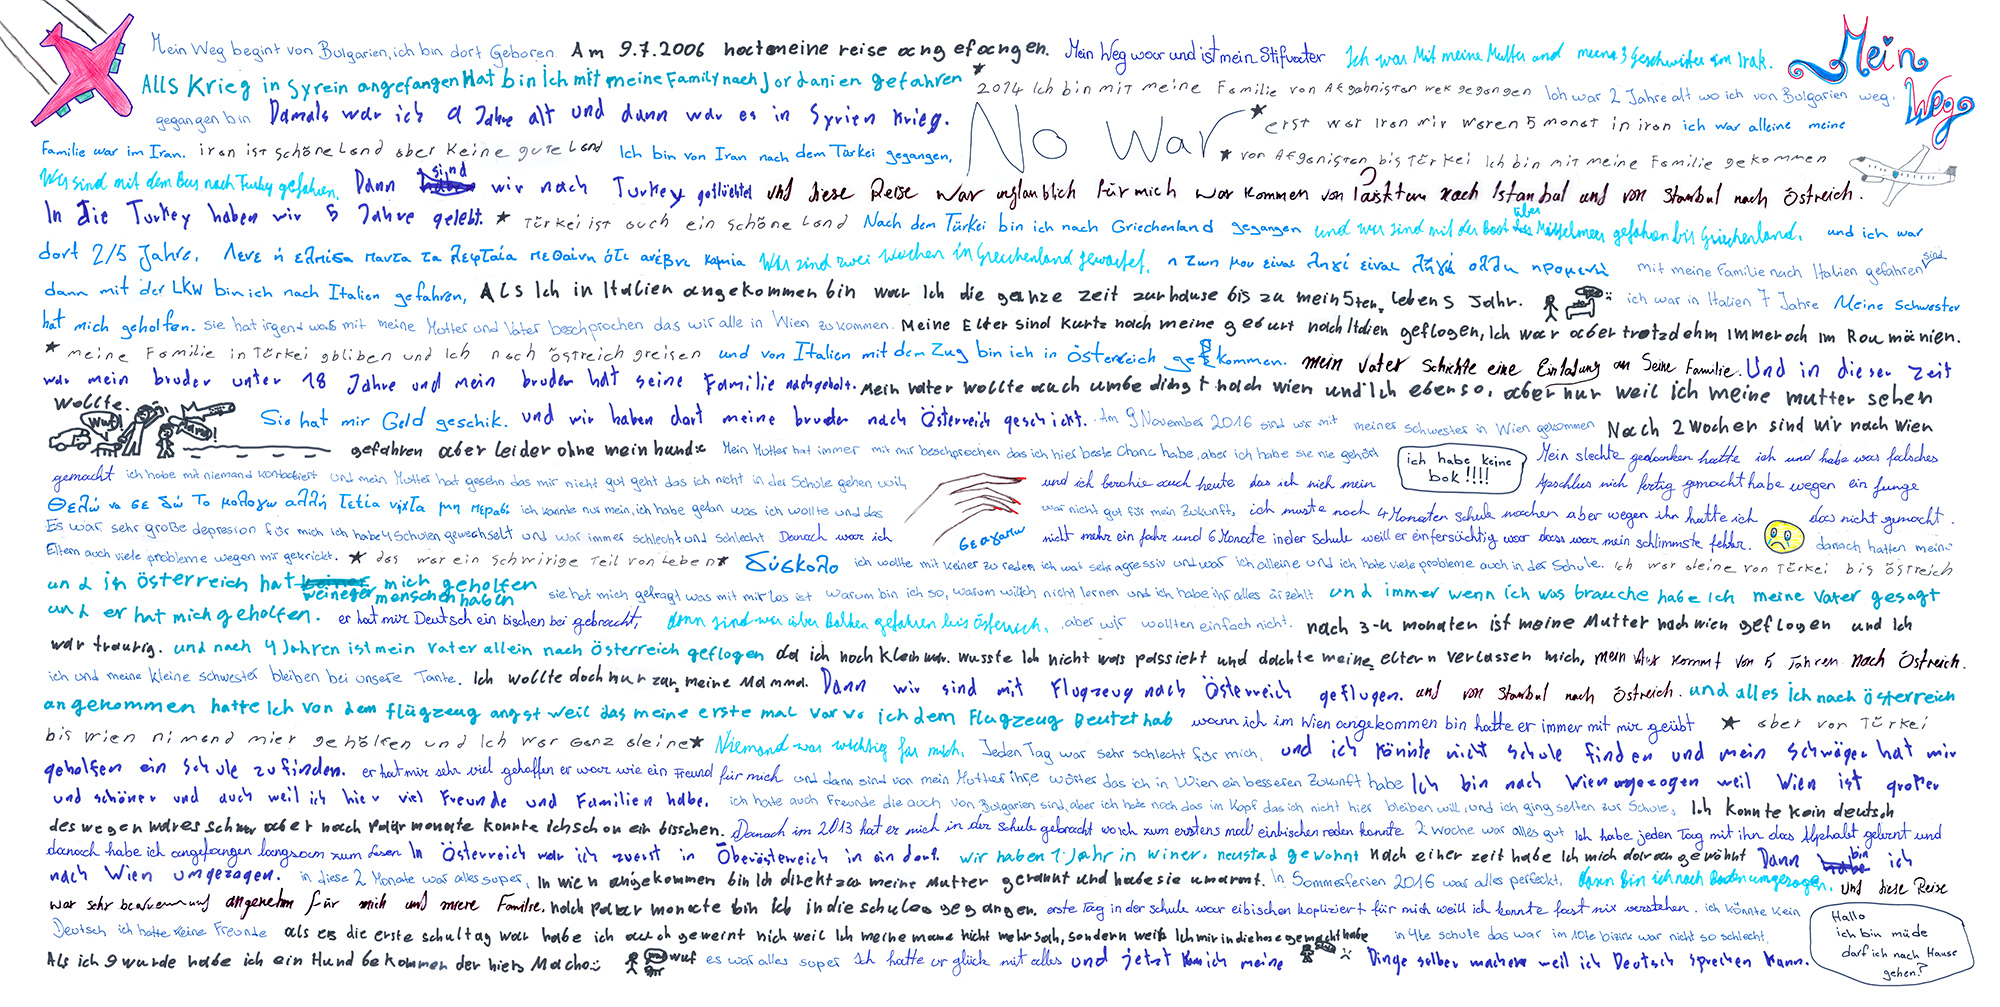 Mein Weg
Mein Weg begint von Bulgarien, ich bin dort Geboren. Am 9.7.2006 hat meine reise angefangen. Mein Weg war und ist mein Stifvater Ich war Mit meine Mutter and meine 3 Geschwister im Irak.
Alls Krieg in Syrein angefangen Hat bin ich mit meine Family nach Jordanien gefahren * 2014 Ich bin mit meine Familie von Afgahnistan wek gegangen Ich war 2 Jahre alt wo ich von Bulgarien weg.
gegangen bin Damals war ich 9 Jahre alt und dann war es in Syrien Krieg. No War * erst war Iran wir waren 5 monat in iran ich war alleine meine
Familie war im Iran. iran ist schöne Land aber keine gute Land Ich bin von Iran nach dem Türkei gegangen, * von Afganistan bis Türkei Ich bin mit meine Familie gekommen
Wir sind mit dem Bus nach Turky gefahren. Dann sind wir nach Turkey geflüchtet und diese Reise war unglaublich für mich war kommen von nach Istanbul und von Stanbul nach Östreich.
In die Turkey haben wir 5 Jahre gelebt. * Türkei ist auch ein schöne Land Nach dem Türkei bin ich nach Griechenland gegangen und wir sind mit der Boot über Mittelmeer gefahren bis Griechenland. und ich war
dort 2/5 Jahre. Λενε ή ελπίδα παντα τα λεφταία πεθαίνη ότι ανέβνε καμία Wir sind zwei wochen in Greichenland gewartet. η ζωη μου είναι ληγέ είναι λήγά αλλη προμενή mit meine Familie nach Italien gefahren sind
dann mit der LKW bin ich nach Italien gefahren, Als Ich in Italien angekommen bin war Ich die ganze zeit zurhause bis zu mein 5ten, lebens Jahr. ich war in Italien 7 Jahre Meine schwester
hat mich geholfen. sie hat irgend was mit meine Mutter und Vater beschprochen das wir alle in Wien zu kommen. Meine Elter sind kurtz nach meine geburt nach Italien geflogen, Ich war aber trotzdehm immer och im Rou mänien.
* meine Familie in Türkei gbliben und Ich nach östreich greisen und von Italien mit dem Zug bin ich in österreich gekommen. mein Vater schickte eine Einladung an Seine Familie. Und in dieser Zeit
war mein bruder unter 18 Jahre und mein bruder hat seine Familie nachgeholt. Mein vater wollte auch umbedingt nach wien und Ich ebenso, aber nur weil ich meine mutter sehen
wollte. Wuf! Sie hat mir Geld geschik. und wir haben dort meine bruder nach Österreich geschickt. Am 9 November 2016 sind wir mit meiner schwester in Wien gekommen Nach 2 Wochen sind wir nach Wien
gefahren aber leider ohne mein hund :c Mein Mutter hat immer mit mir beschprochen das ich hier beste Chanc habe, aber ich habe sie nie gehört ich habe keine bok!!!! Mein slechte gedanken hatte ich und habe was falsches
gemacht ich habe mit niemand kontacktiert und mein Mutter hat gesehn das mir nicht gut geht das ich nicht in der Schule gehen will, und ich berohie auch heute das ich nich mein Apschlus nich fertig gemacht habe wegen ein junge
Θελώ να σε δώ Το μολογω αλλή Τετία νύχτα μη περαδι ich konnte nur mein, ich habe getan was ich wollte und das war nicht gut für mein Zukunft, ich muste noch 4 Monaten schule machen aber wegen ihn hatte ich das nicht gemacht.
Es war sehr große depresion für mich ich habe 4 Schulen gewechselt und war immer schlecht und schlecht Danach war ich nicht mehr ein Jahr und 6 Monate in der Schule weill er einfersüchtig war dass war mein schlimmste fehler. danach hatten meine
Eltern auch viele probleme wegen mir gekrickt. * das war ein schwirige Teil von Leben * δύσκολο ich wollte mit keiner zu reden ich wat sehr agressiv und war ich alleine und ich habe viele probleme auch in der Schule. Ich war aleine von Türkei bis östreich
und in österreich hat mich geholfen weineger menschen haben sie hat mich gefragt was mit mir los ist warum bin ich so, warum will ich nicht lernen und ich habe ihr alles arzehlt und immer wenn ich was brauche habe Ich meine Vater gesagt
und er hat mich geholfen. er hat mir Deutsch ein bischen bei gebracht, dann sind wir über Balken gefahren bis Österreich, aber wir wollten einfach nicht. nach 3-4 monaten ist meine Mutter nach wien geflogen und Ich
war traurig. und nach 4 Jahren ist mein Vater allein nach österreich geflogen da ich noch klein war. wusste Ich nicht was passiert und dachte meine eltern verlassen mich, mein Vater kommt von 5 Jahren nach Östreich.
ich und meine kleine schwester bleiben bei unsere Tante. Ich wollte doch nur zur meine Mamma. Dann wir sind mit Flugzeug nach Österreich geflugen. und von Stanbul nach Östreich. und alles ich nach österreich
angekommen hatte Ich von dem flügzeug angst weil das meine erste mal Var wo ich dem Flugzeug beutzt hab wann ich im Wien angekommen bin hatte er immer mit mir geübt * aber von Türkei
bis wien nimand mier geholfen und Ich war Ganz aleine * Niemand war wichtig für mich. Jeden Tag war sehr schlecht für mich, und ich könnte nicht schule finden und mein schwäger hat mir
geholfen ein schule zu finden. er hat mir sehr viel geholfen er war wie ein Freund für mich und dann sind von mein Mutter ihre, wörter das ich in Wien ein besseren Zukunft habe Ich bin nach Wien umgezogen weil Wien ist großer
und schöner und auch weil ich hier viel Freunde und Familien habe. ich hate auch Freunde die auch von Bulgarien sind, aber ich hate noch das im Kopf das ich nicht hier bleiben will, und ich ging selten zur Schule, Ich konnte kein deutsch
deswegen wares schwer aber nach Paar monate konnte ich schon ein bisschen. Danach im 2013 hat er mich in der schule gebracht wo ich zum erstens mal einbischen reden konnte 2 woche war alles gut Ich habe jeden Tag mit ihn das Alphabet gelernt und
danach habe ich angefangen langsam zum lesen In Österreich war ich zuerst in Oberösterweich in ein dorf. wir haben 1 Jahr in winer, neustad gewohnt nach einer zeit habe Ich mich daran gewöhnt Dann bin ich
nach Wien umgezogen. in diese 2 Monate war alles super, In wien angekommen bin Ich direkt zu meine Mutter gerannt und habe sie umarmt. In Sommerferien 2016 war alles perfeckt. dann Bin ich nach Baden umgezogen. und diese Reise
war sehr angenehm für mich und meine Familie. nach Paar monate bin Ich in die schule gegangen. erste Tag in der schule war eibischen kopliziert für mich weill ich konnte fast nix verstehen. ich könnte kein
Deutsch ich hatte keine Freunde als es die erste schultag war habe ich auch geweint nich weil Ich meine mama nicht mehr sah, sondern weil Ich mir in die hose gemacht habe in 4te schule das war im 10te bizirk war nicht so schlecht,
Als ich 9 wurde habe ich ein Hund bekommen der hiers Macho :) wuf es war alles super Ich hatte ur glück mit alles und jetzt kan ich meine Dinge selber machen weil ich Deutsch sprechen kann.
Hallo
ich bin müde
darf ich nach Hause
gehen?